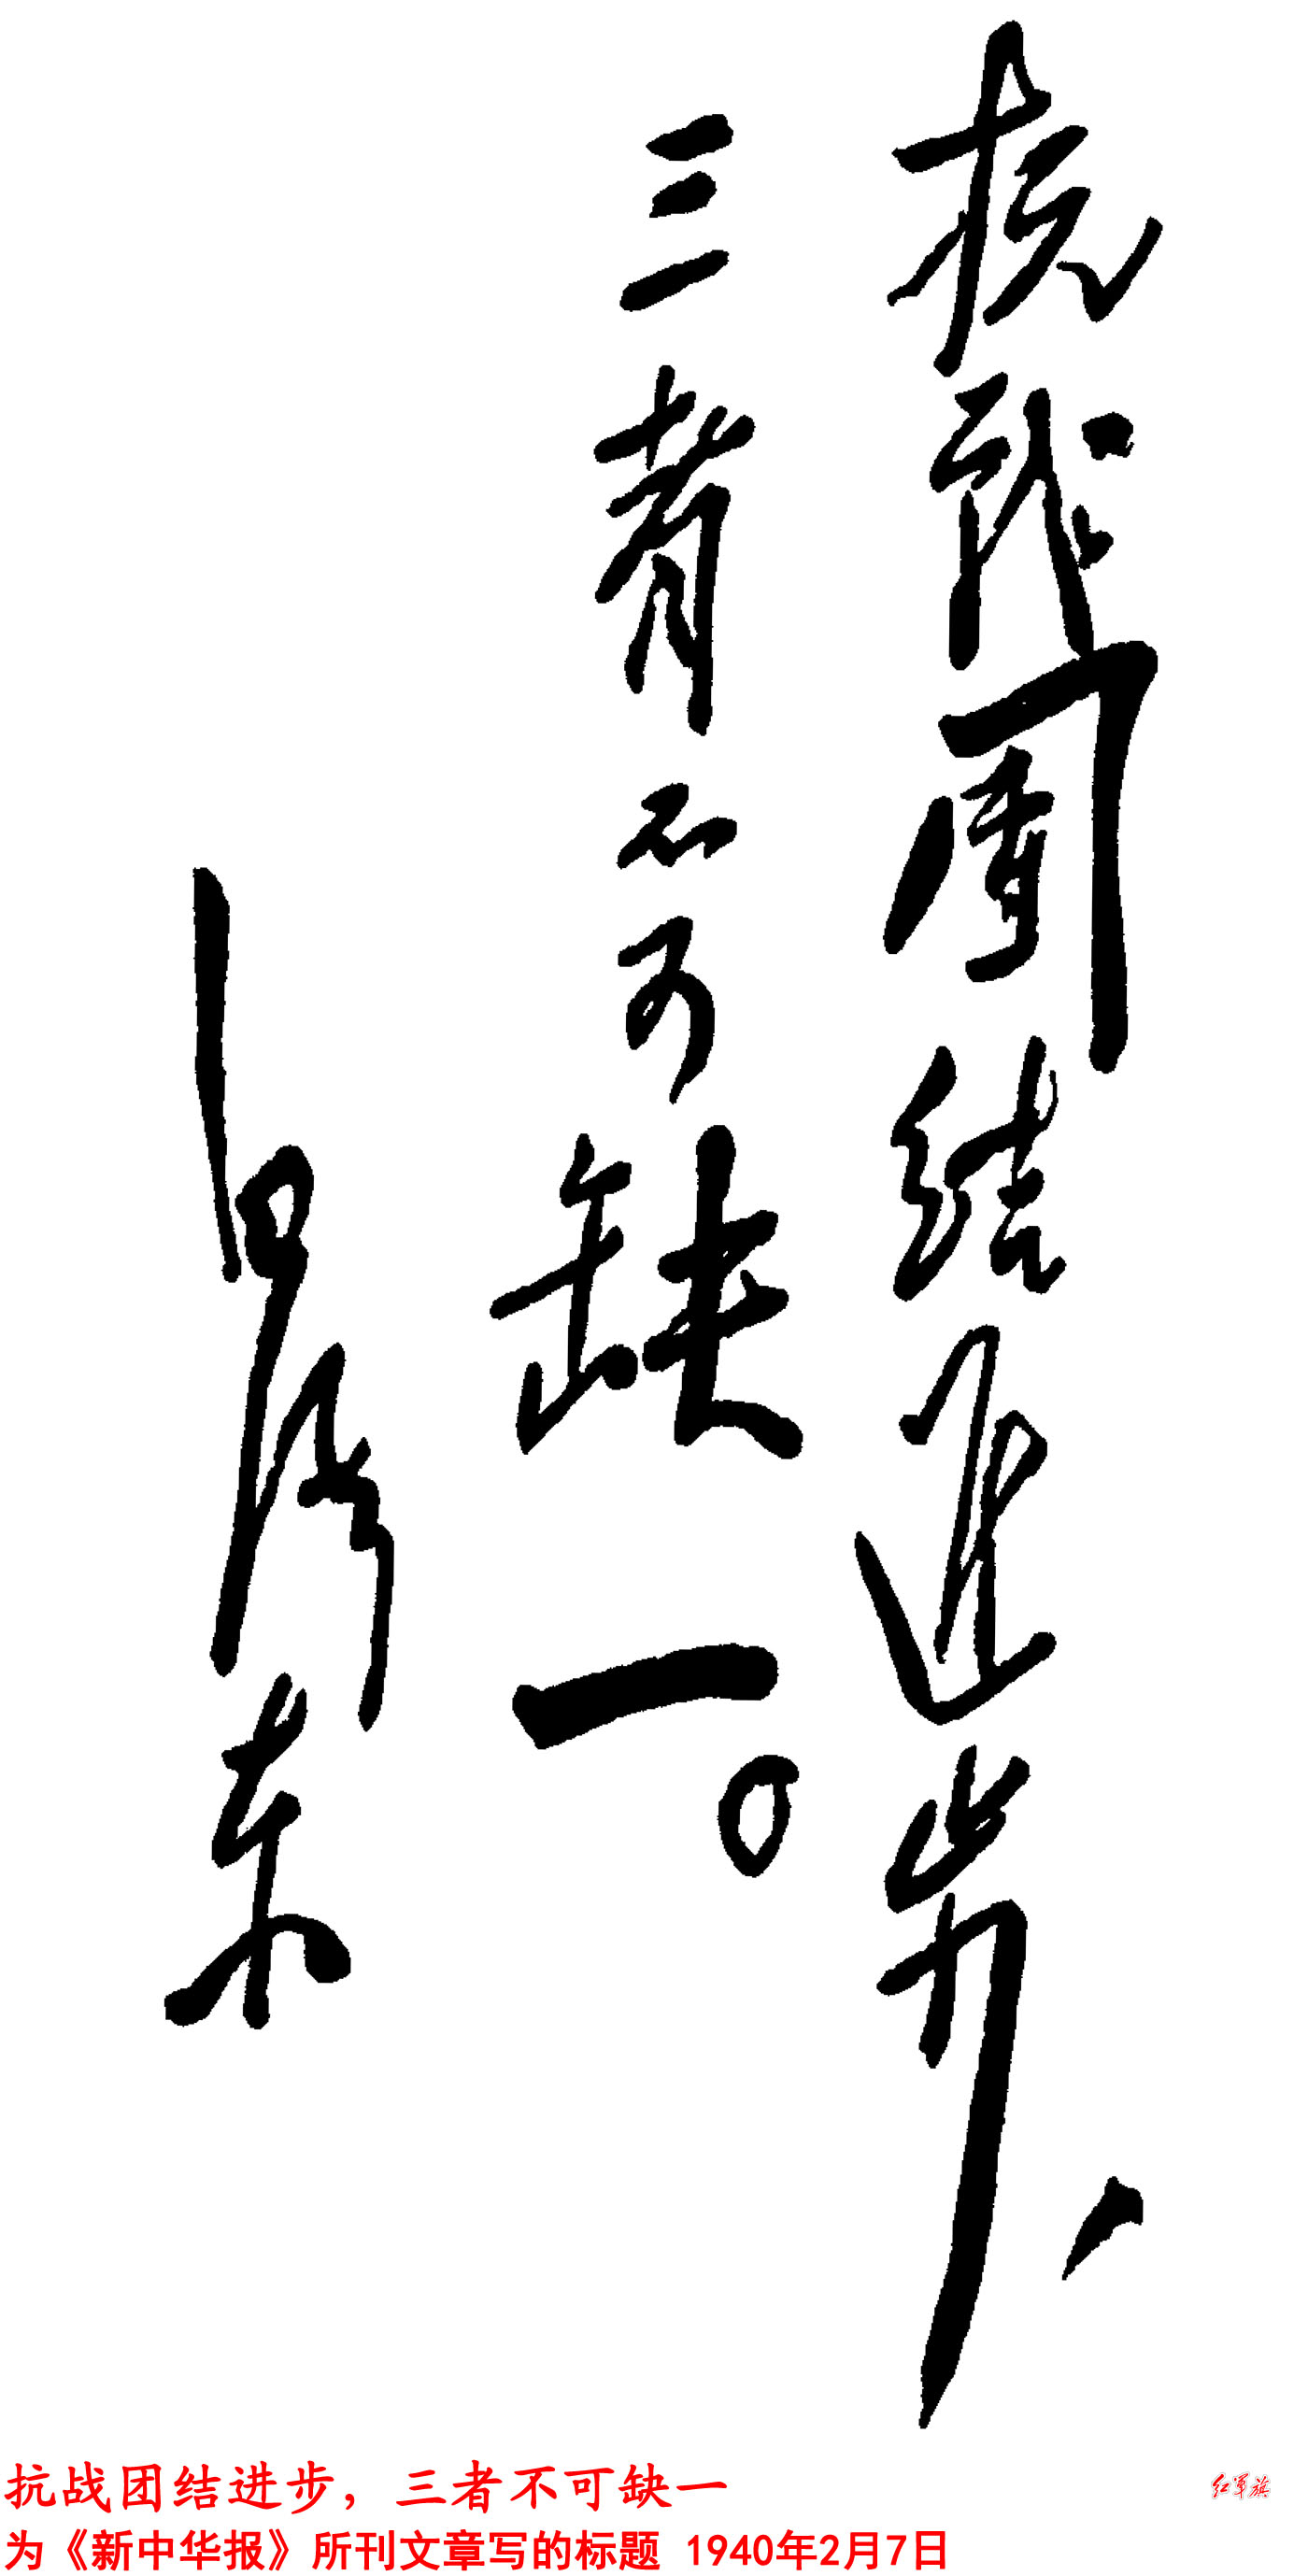 抗戰團結進步，
三者不可缺一。
毛澤東
抗战团结进步，三者不可缺一
为《新中华报》所刊文章写的标题 1940年2月7日
红军旗